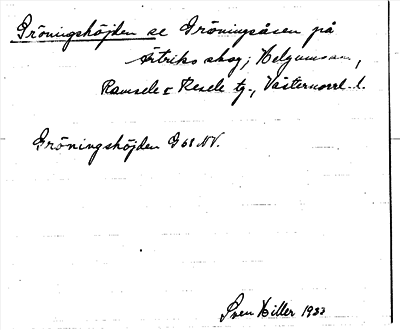 Gröningshöjden se Gröningsåsen på
Artriks skog, Helgums sn,
Ramsele o Resele tg., Västernorrl. l.
Gröningshöjden G 68 NV.
Sven Hiller 1933